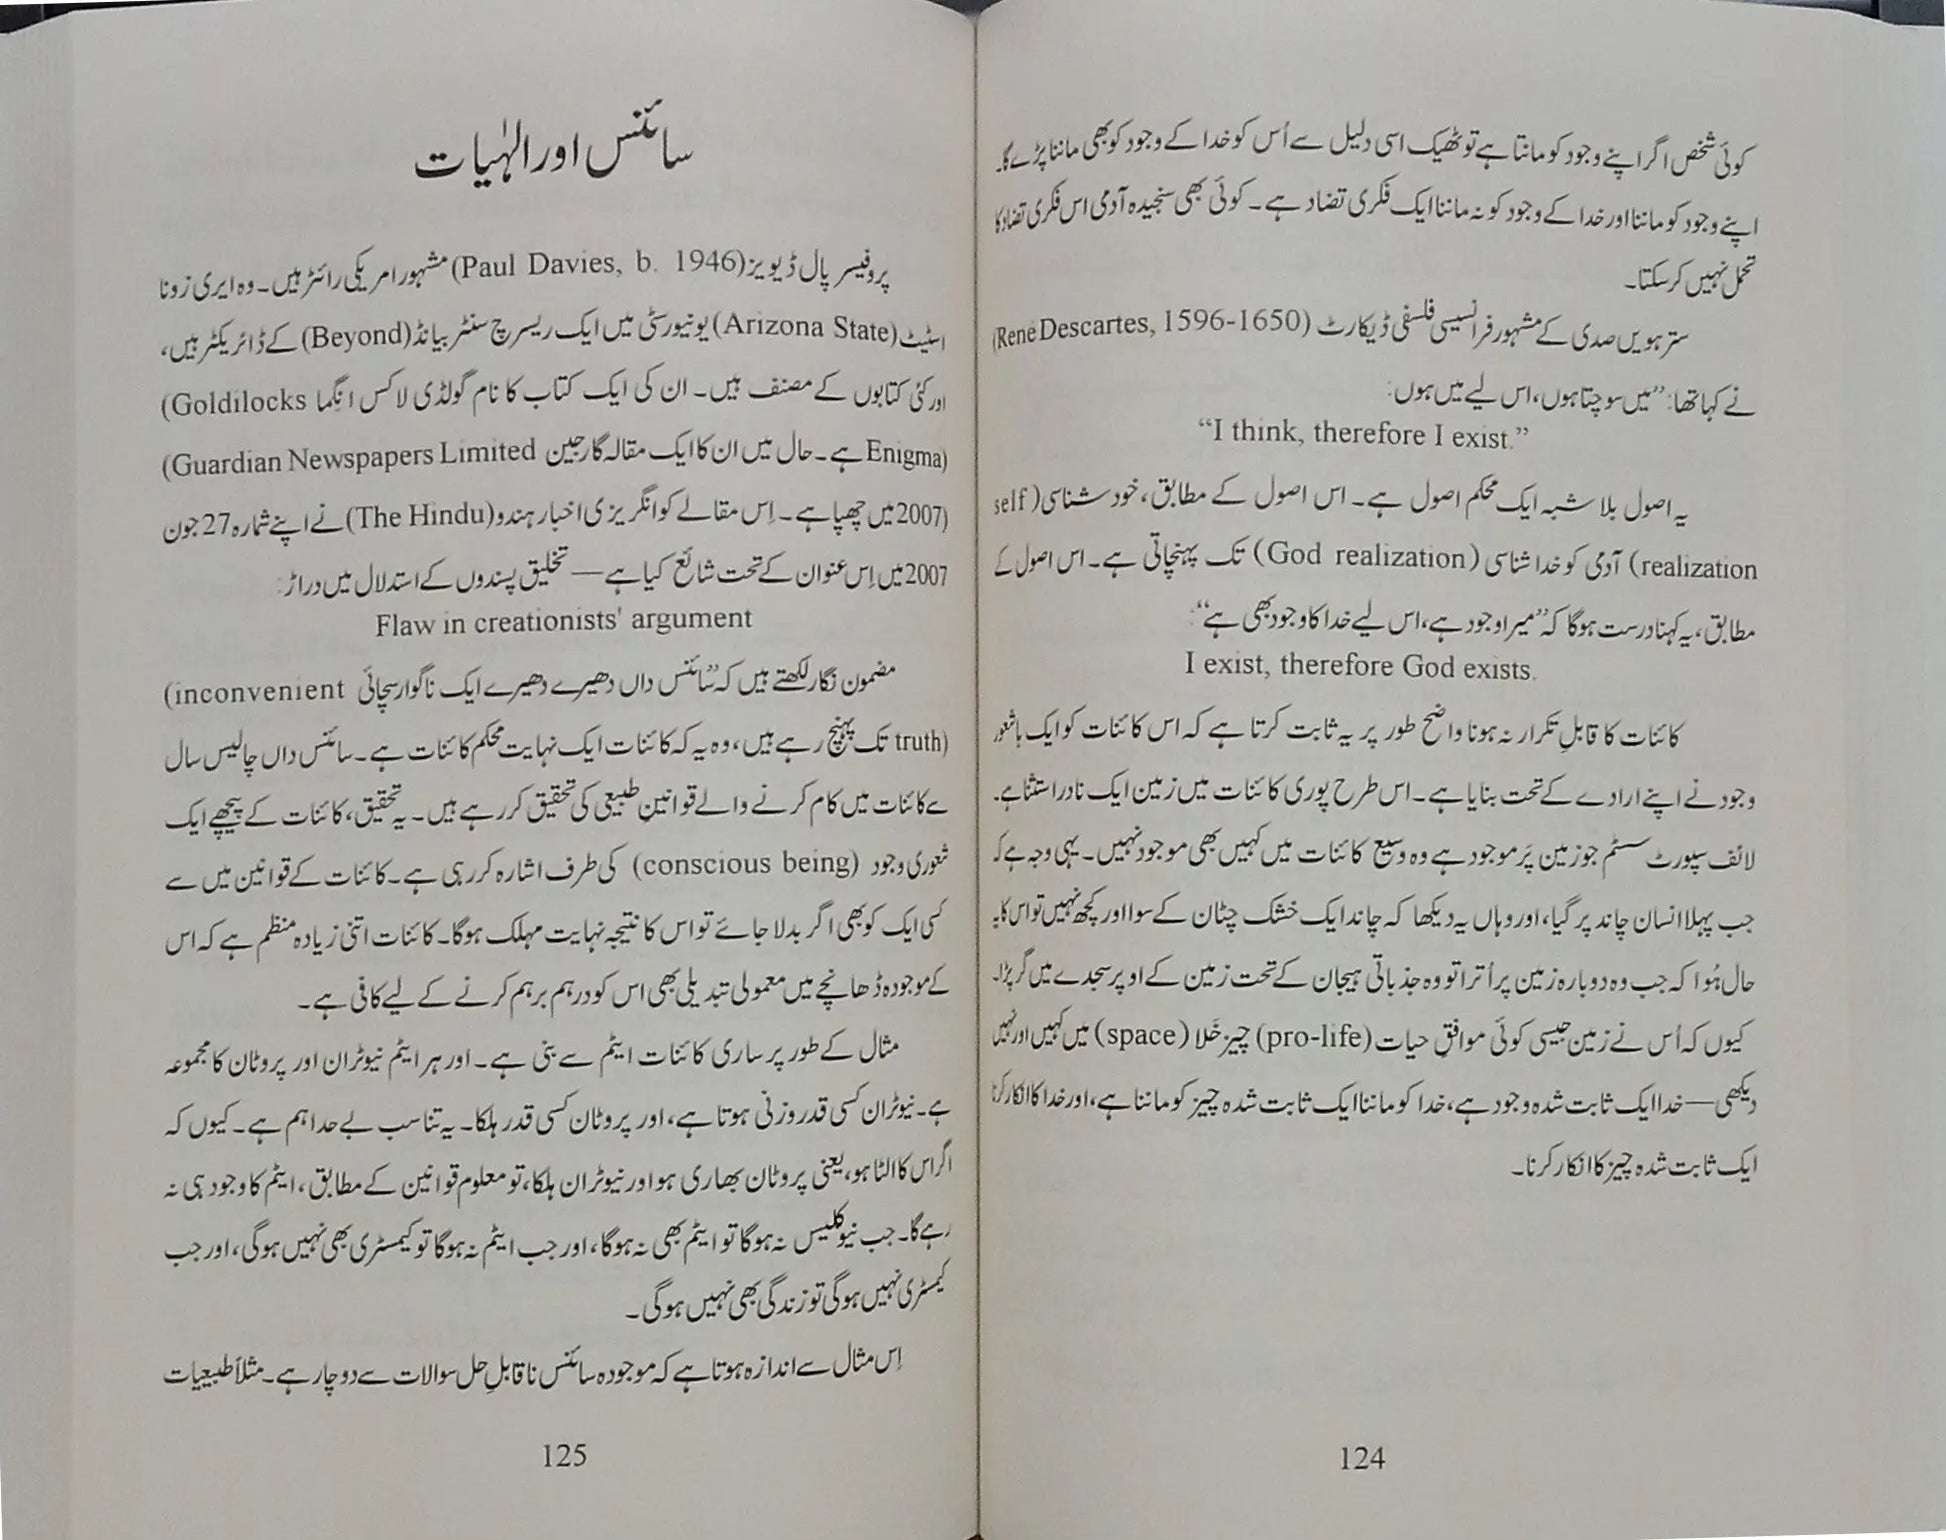 کوئی شخص اگر اپنے وجود کو مانتا ہے تو ٹھیک اسی دلیل سے اُس کو خدا کے وجود کو بھی ماننا پڑے گا۔
اپنے وجود کو ماننا اور خدا کے وجود کو نہ ماننا ایک فکری تضاد ہے۔ کوئی بھی سنجیدہ آدمی اس فکری تضاد کا
تحمل نہیں کرسکتا۔
سترہویں صدی کے مشہور فرانسیسی فلسفی ڈیکارٹ (René Descartes, 1596-1650)
نے کہا تھا: ”میں سوچتا ہوں، اس لیے میں ہوں:
“I think, therefore I exist.”
یہ اصول بلاشبہ ایک محکم اصول ہے۔ اس اصول کے مطابق، خود شناسی (self
realization) آدمی کو خدا شناسی (God realization) تک پہنچاتی ہے۔ اس اصول کے
مطابق، یہ کہنا درست ہوگا کہ ”میرا وجود ہے، اس لیے خدا کا وجود بھی ہے“:
I exist, therefore God exists.
کائنات کا قابلِ تکرار نہ ہونا واضح طور پر یہ ثابت کرتا ہے کہ اس کائنات کو ایک باشعور
وجود نے اپنے ارادے کے تحت بنایا ہے۔ اس طرح پوری کائنات میں زمین ایک نادر استثنا ہے۔
لائف سپورٹ سسٹم جو زمین پر موجود ہے وہ وسیع کائنات میں کہیں بھی موجود نہیں۔ یہی وجہ ہے کہ
جب پہلا انسان چاند پر گیا، اور وہاں یہ دیکھا کہ چاند ایک خشک چٹان کے سوا اور کچھ نہیں تو اس کا یہ
حال ہُوا کہ جب وہ دوبارہ زمین پر اُترا تو وہ جذباتی ہیجان کے تحت زمین کے اوپر سجدے میں گر پڑا۔
کیوں کہ اُس نے زمین جیسی کوئی موافقِ حیات (pro-life) چیز خَلا (space) میں کہیں اور نہیں
دیکھی—خدا ایک ثابت شدہ وجود ہے، خدا کو ماننا ایک ثابت شدہ چیز کو ماننا ہے، اور خدا کا انکار کرنا
ایک ثابت شدہ چیز کا انکار کرنا۔
124
سائنس اور الٰہیات
پروفیسر پال ڈیویز (Paul Davies, b. 1946) مشہور امریکی رائٹر ہیں۔ وہ ایری زونا
اسٹیٹ (Arizona State) یونیورسٹی میں ایک ریسرچ سنٹر بیانڈ (Beyond) کے ڈائریکٹر ہیں،
اور کئی کتابوں کے مصنف ہیں۔ ان کی ایک کتاب کا نام گولڈی لاکس انِگما (Goldilocks
Enigma) ہے۔ حال میں ان کا ایک مقالہ گارجین (Guardian Newspapers Limited
2007) میں چھپا ہے۔ اِس مقالے کو انگریزی اخبار ہندو (The Hindu) نے اپنے شمارہ 27 جون
2007 میں اِس عنوان کے تحت شائع کیا ہے— تخلیق پسندوں کے استدلال میں دراڑ:
Flaw in creationists' argument
مضمون نگار لکھتے ہیں کہ ”سائنس داں دھیرے دھیرے ایک ناگوار سچائی (inconvenient
truth) تک پہنچ رہے ہیں، وہ یہ کہ کائنات ایک نہایت محکم کائنات ہے۔ سائنس داں چالیس سال
سے کائنات میں کام کرنے والے قوانینِ طبیعی کی تحقیق کررہے ہیں۔ یہ تحقیق، کائنات کے پیچھے ایک
شعوری وجود (conscious being) کی طرف اشارہ کررہی ہے۔ کائنات کے قوانین میں سے
کسی ایک کو بھی اگر بدلا جائے تو اس کا نتیجہ نہایت مہلک ہوگا۔ کائنات اتنی زیادہ منظم ہے کہ اس
کے موجودہ ڈھانچے میں معمولی تبدیلی بھی اس کو درہم برہم کرنے کے لیے کافی ہے۔
مثال کے طور پر ساری کائنات ایٹم سے بنی ہے۔ اور ہر ایٹم نیوٹران اور پروٹان کا مجموعہ
ہے۔ نیوٹران کسی قدر وزنی ہوتا ہے، اور پروٹان کسی قدر ہلکا۔ یہ تناسب بے حد اہم ہے۔ کیوں کہ
اگر اس کا الٹا ہو، یعنی پروٹان بھاری ہو اور نیوٹران ہلکا، تو معلوم قوانین کے مطابق، ایٹم کا وجود ہی نہ
رہے گا۔ جب نیوکلیس نہ ہوگا تو ایٹم بھی نہ ہوگا، اور جب ایٹم نہ ہوگا تو کیمسٹری بھی نہیں ہوگی، اور جب
کیمسٹری نہیں ہوگی تو زندگی بھی نہیں ہوگی۔
اِس مثال سے اندازہ ہوتا ہے کہ موجودہ سائنس ناقابلِ حل سوالات سے دوچار ہے۔ مثلاً طبیعیات
125